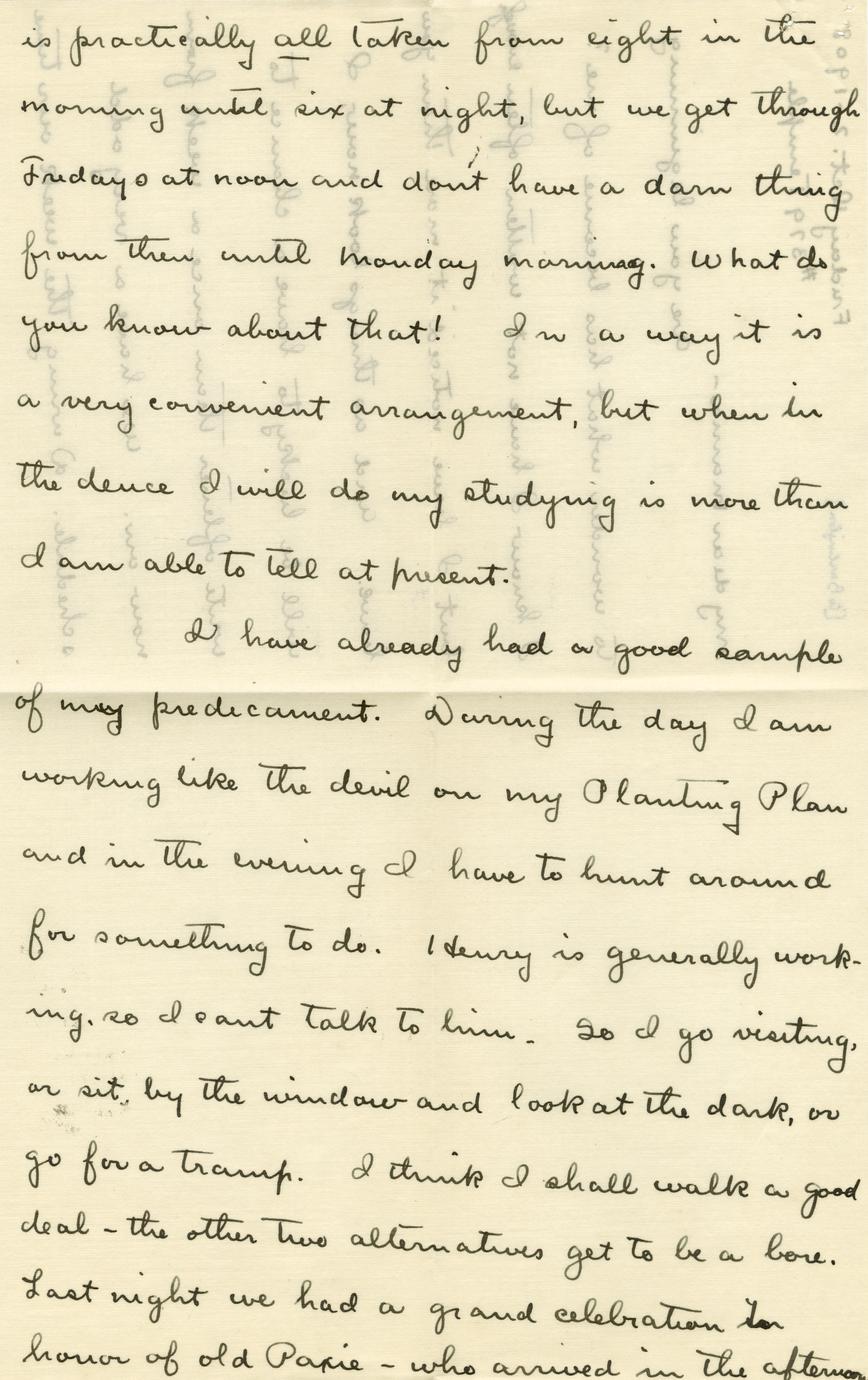 is practically all taken from eight in the
morning until six at night, but we get through
Fridays at noon and don't have a darn thing
from then until Monday morning. What do
you know about that! In a way it is
a very convenient arrangement, but when in
the deuce I will do my studying is more than
I am able to tell at present.
I have already had a good sample
of my predicament. During the day I am
working like the devil on my Planting Plan
and in the evening I have to hunt around
for something to do. Henry is generally work-
ing, so I cant talk to him. So I go visiting,
or sit by the window and look at the dark, or
go for a tramp. I think I shall walk a good
deal - the other two alternatives get to be a bore.
Last night we had a grand celebration in
honor of old Paxie - who arrived in the afternoon